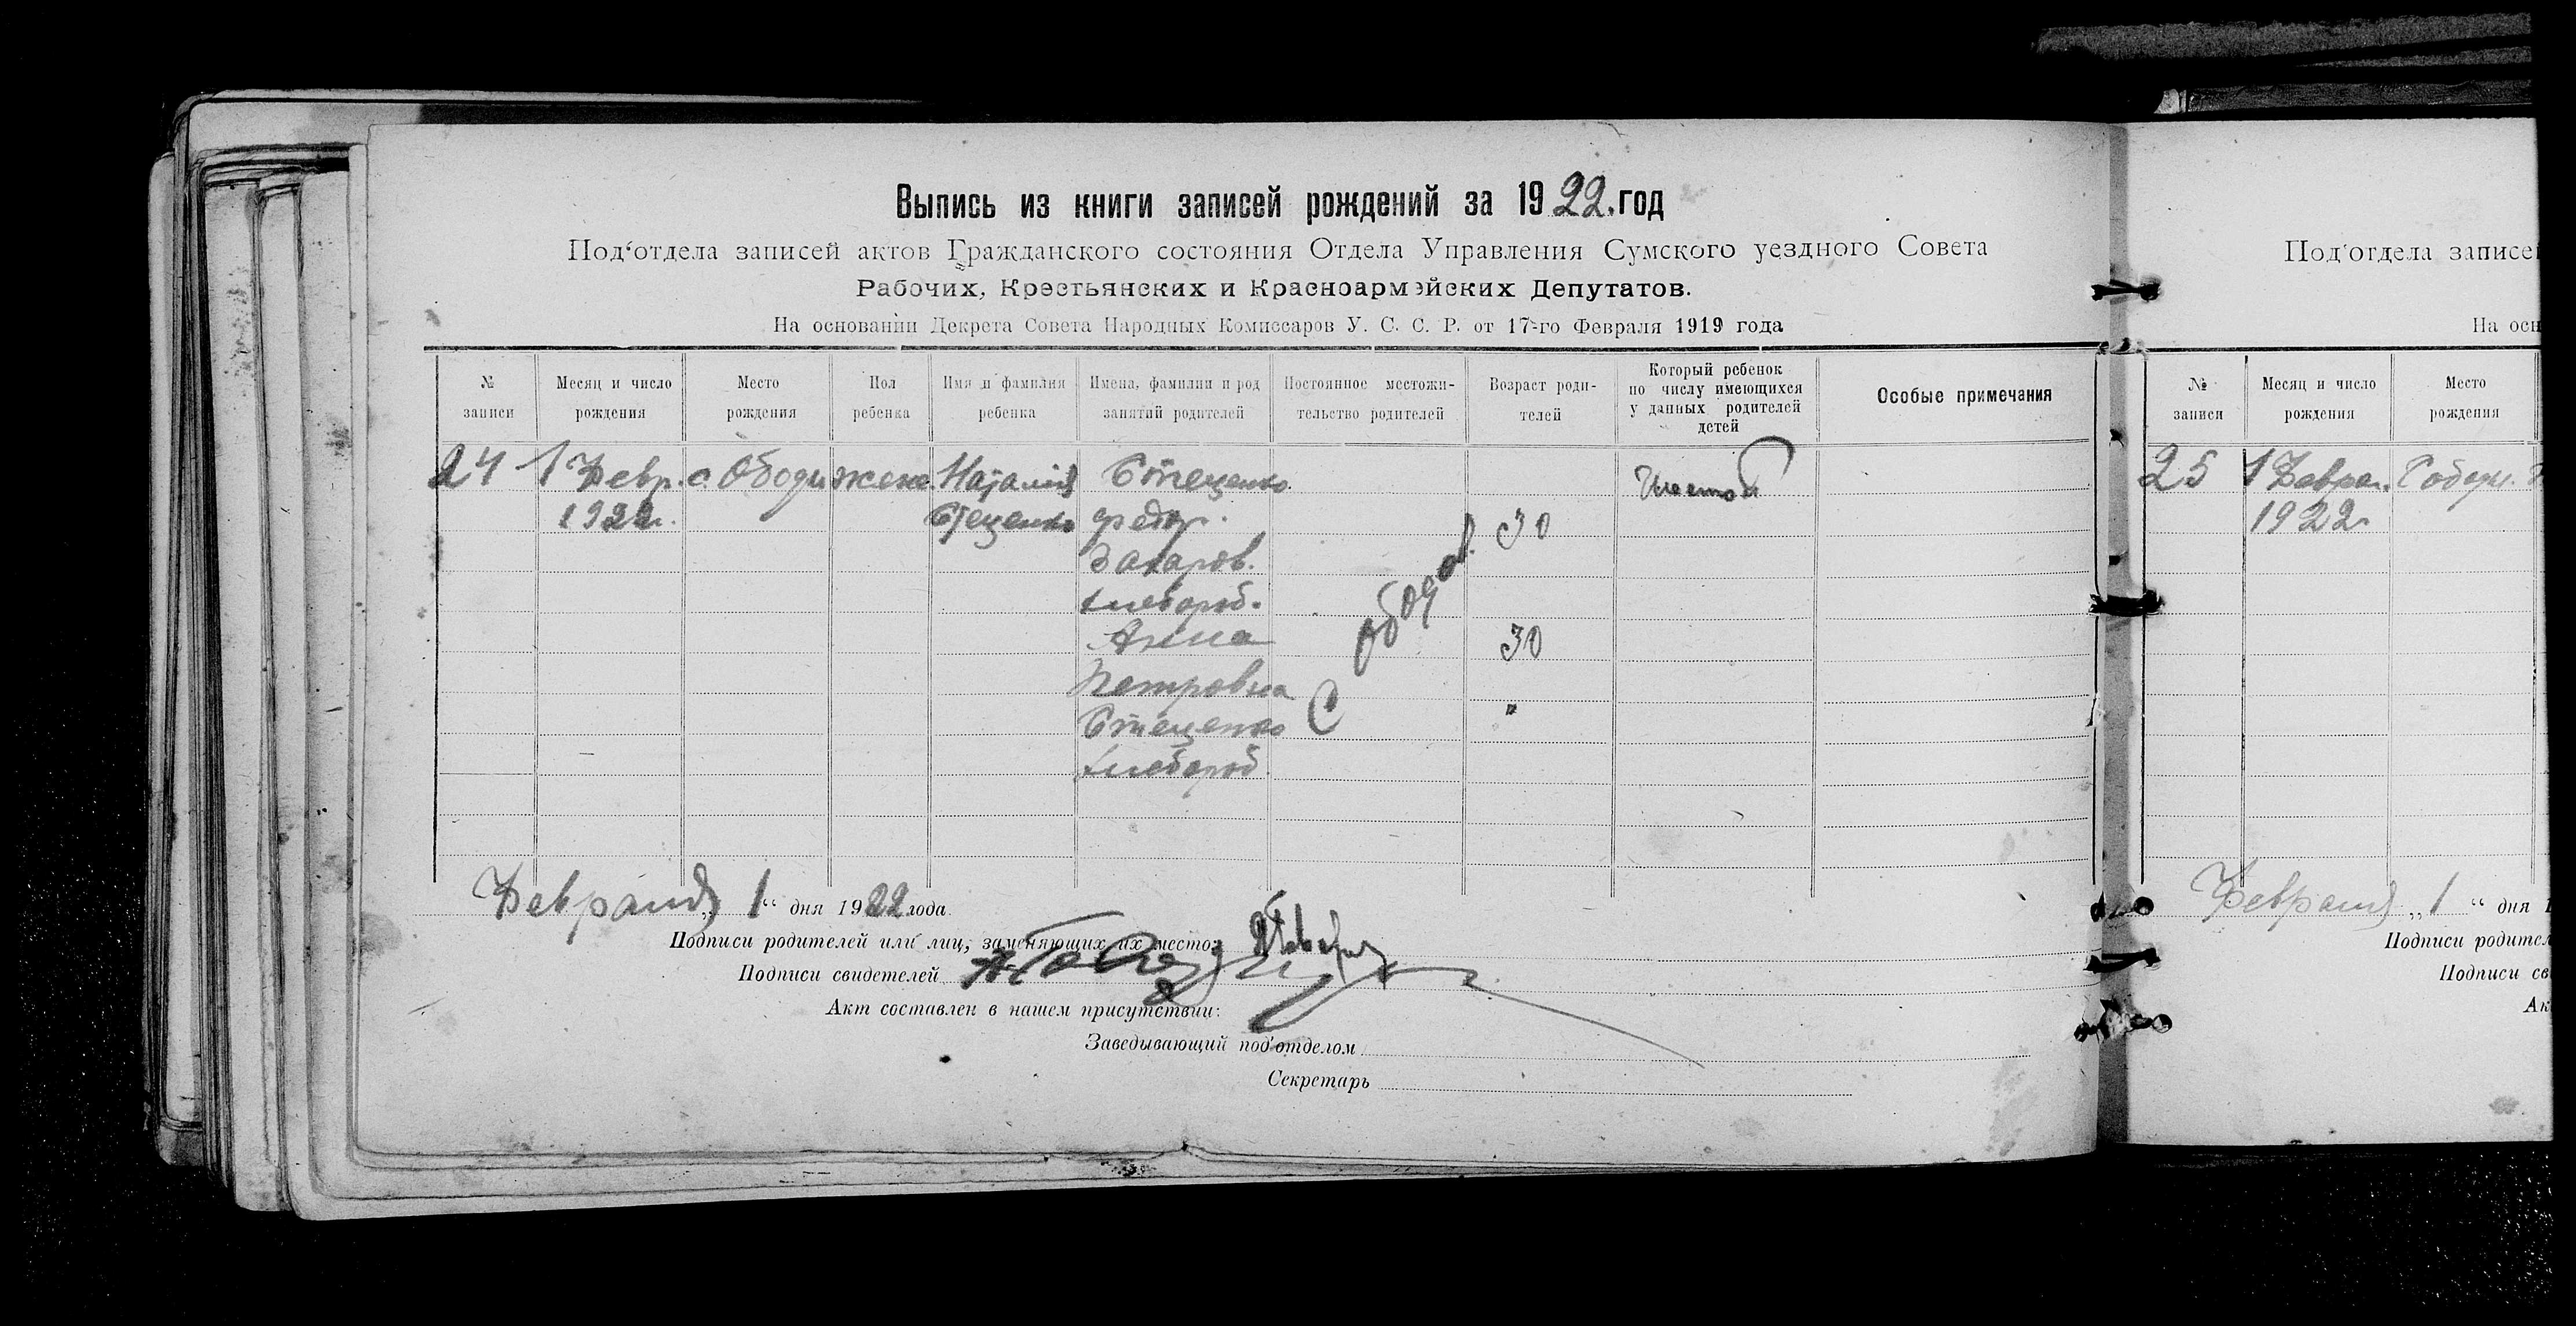 Выпись из книги записей рождений за 1922.год
Под‘отдела записей актов Гражданского состояния Отдела Управления Сумского уездного Совета
Рабочих, Крестьянских и Красноармейских Депутатов.
На основании Декрета Совета Народных Комиссаров У. С. С. Р. от 17-го Февраля 1919 года
№ записи
Месяц и число рождения
Место рождения
Пол ребенка
Имя и фамилия ребенка
Имена, фамилии и род занятий родителей
Постоянное местожительство родителей
Возраст родителей
Который ребенок по числу имеющихся у данных родителей детей
Особые примечания
24
1 Февр. 1922г.
с. Ободы
женс.
Наталия
Стеценко
Стеценко
Федор.
Захаров.
хлебороб.
Анна
Петровна
Стеценко
хлебороб
С
30
30
"
Шестой
Февраля „1“ дня 1922 года
Подписи родителей или лиц, заменяющих их место:
Подписи свидетелей
Акт составлен в нашем присутствии:
Заведывающий под‘отделом
Секретарь
Под‘отдела записей
На осн
№ записи
Месяц и число рождения
Место рождения
25
1 Феврал.
1922г
С Ободы.
Февраля „1“ дня 1
Подписи родител
Подписи св
Ак